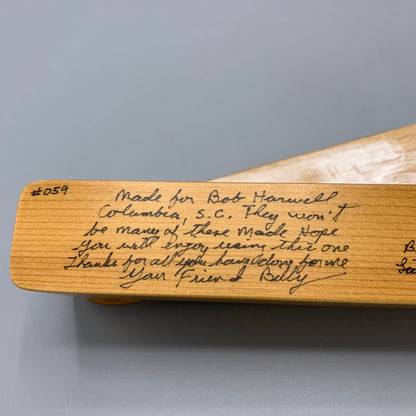 #059
Made for Bob Harwell
Columbia, S.C. They won't
be many of these made Hope
you will enjoy using this one
Thanks for all you have done for me
Your Friend Billy
B